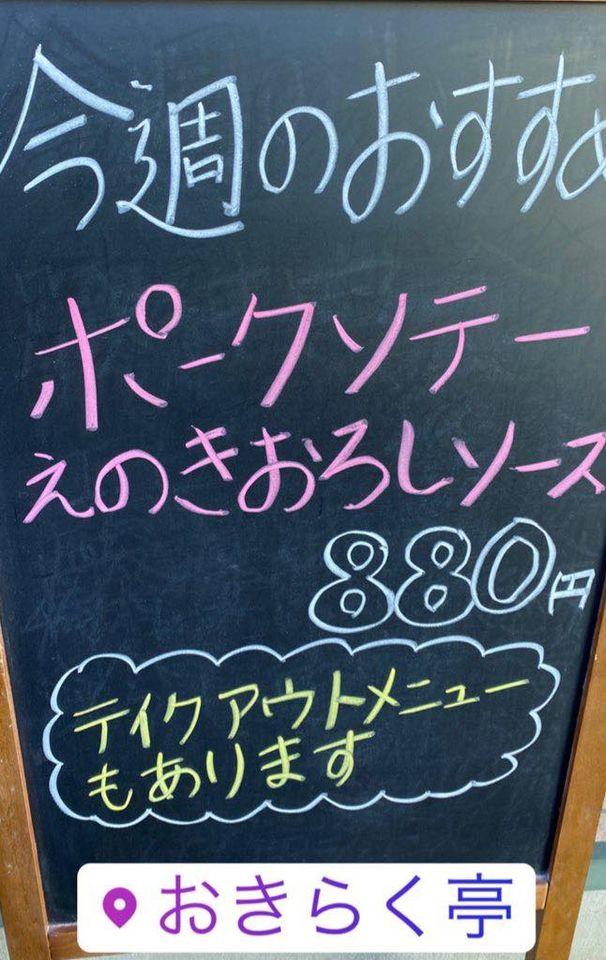 今週のおすすめ
ポークソテー
えのきおろしソース
880円
テイクアウトメニュー
もあります
おきらく亭